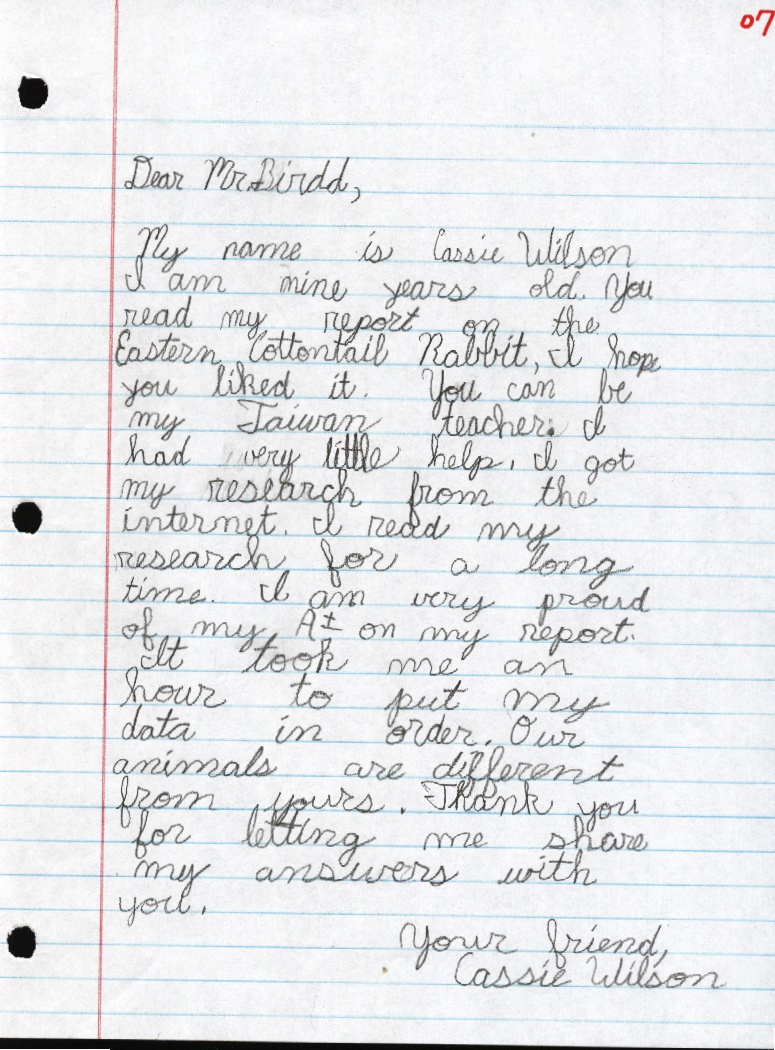 07
Dear Mr. Birdd,
My name is Cassie Wilson
I am nine years old. You
read my report on the
Eastern Cottontail Rabbit, I hope
you liked it. You can be
my Taiwan teacher. I
had very little help. I got
my research from the
internet. I read my
research for a long
time. I am very proud
of my A± on my report.
It took me an
hour to put my
data in order. Our
animals are different
from yours. Thank you
for letting me share
my answers with
you.
Your friend,
Cassie Wilson